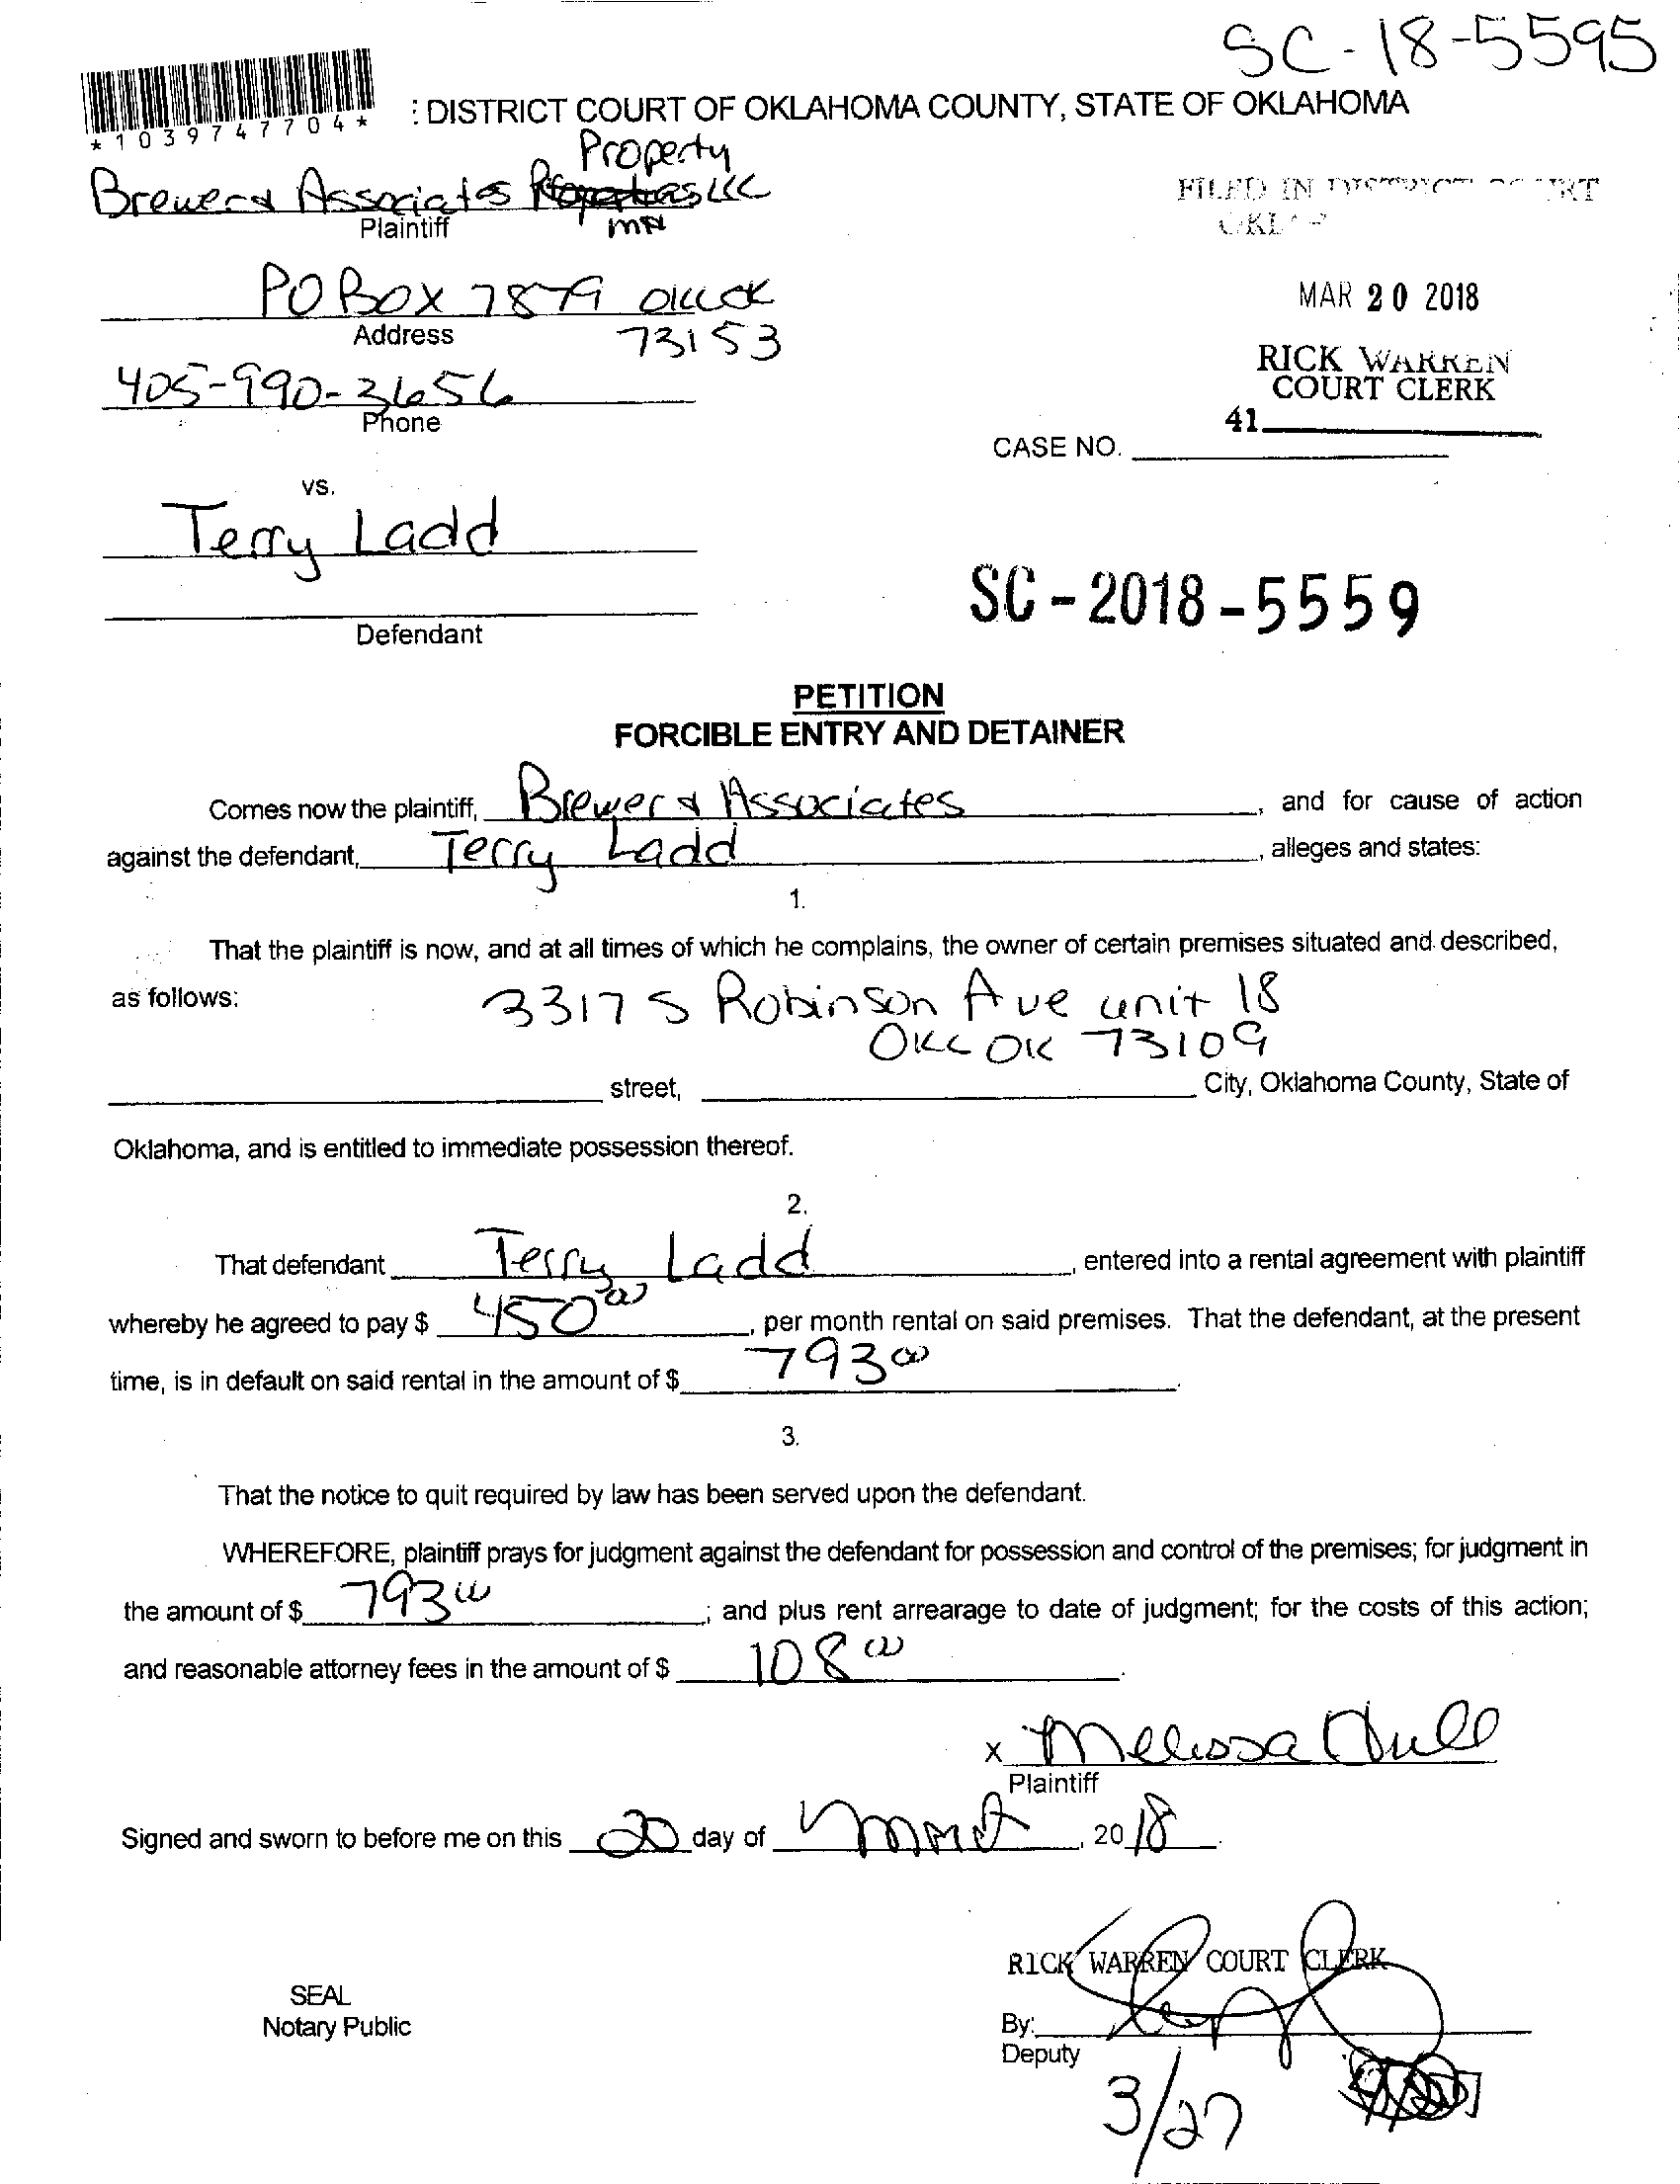 SC-18-5595
*1039747704*
: DISTRICT COURT OF OKLAHOMA COUNTY, STATE OF OKLAHOMA
Property
Brewer & Associates LLC
Plaintiff
MH
FILED IN DISTRICT COURT
PO Box 7879 OKC OK
Address
73153
MAR 20 2018
RICK WARREN
COURT CLERK
405-990-3656
Phone
41
CASE NO.
vs.
Terry Ladd
SC-2018-5559
Defendant
PETITION
FORCIBLE ENTRY AND DETAINER
Comes now the plaintiff, Brewer & Associates, and for cause of action
against the defendant, Terry Ladd, alleges and states:
1.
That the plaintiff is now, and at all times of which he complains, the owner of certain premises situated and described,
as follows: 3317 S Robinson Ave unit 18
OKC OK 73109
street, City, Oklahoma County, State of
Oklahoma, and is entitled to immediate possession thereof.
2.
That defendant Terry Ladd, entered into a rental agreement with plaintiff
whereby he agreed to pay $ 450 00, per month rental on said premises. That the defendant, at the present
time, is in default on said rental in the amount of $ 793 00.
3.
That the notice to quit required by law has been served upon the defendant.
WHEREFORE, plaintiff prays for judgment against the defendant for possession and control of the premises; for judgment in
the amount of $ 793 00; and plus rent arrearage to date of judgment; for the costs of this action;
and reasonable attorney fees in the amount of $ 108 00.
x Melissa Hull
Plaintiff
Signed and sworn to before me on this 20 day of March, 2018.
RICK WARREN COURT CLERK
SEAL
Notary Public
By:
Deputy
3/27